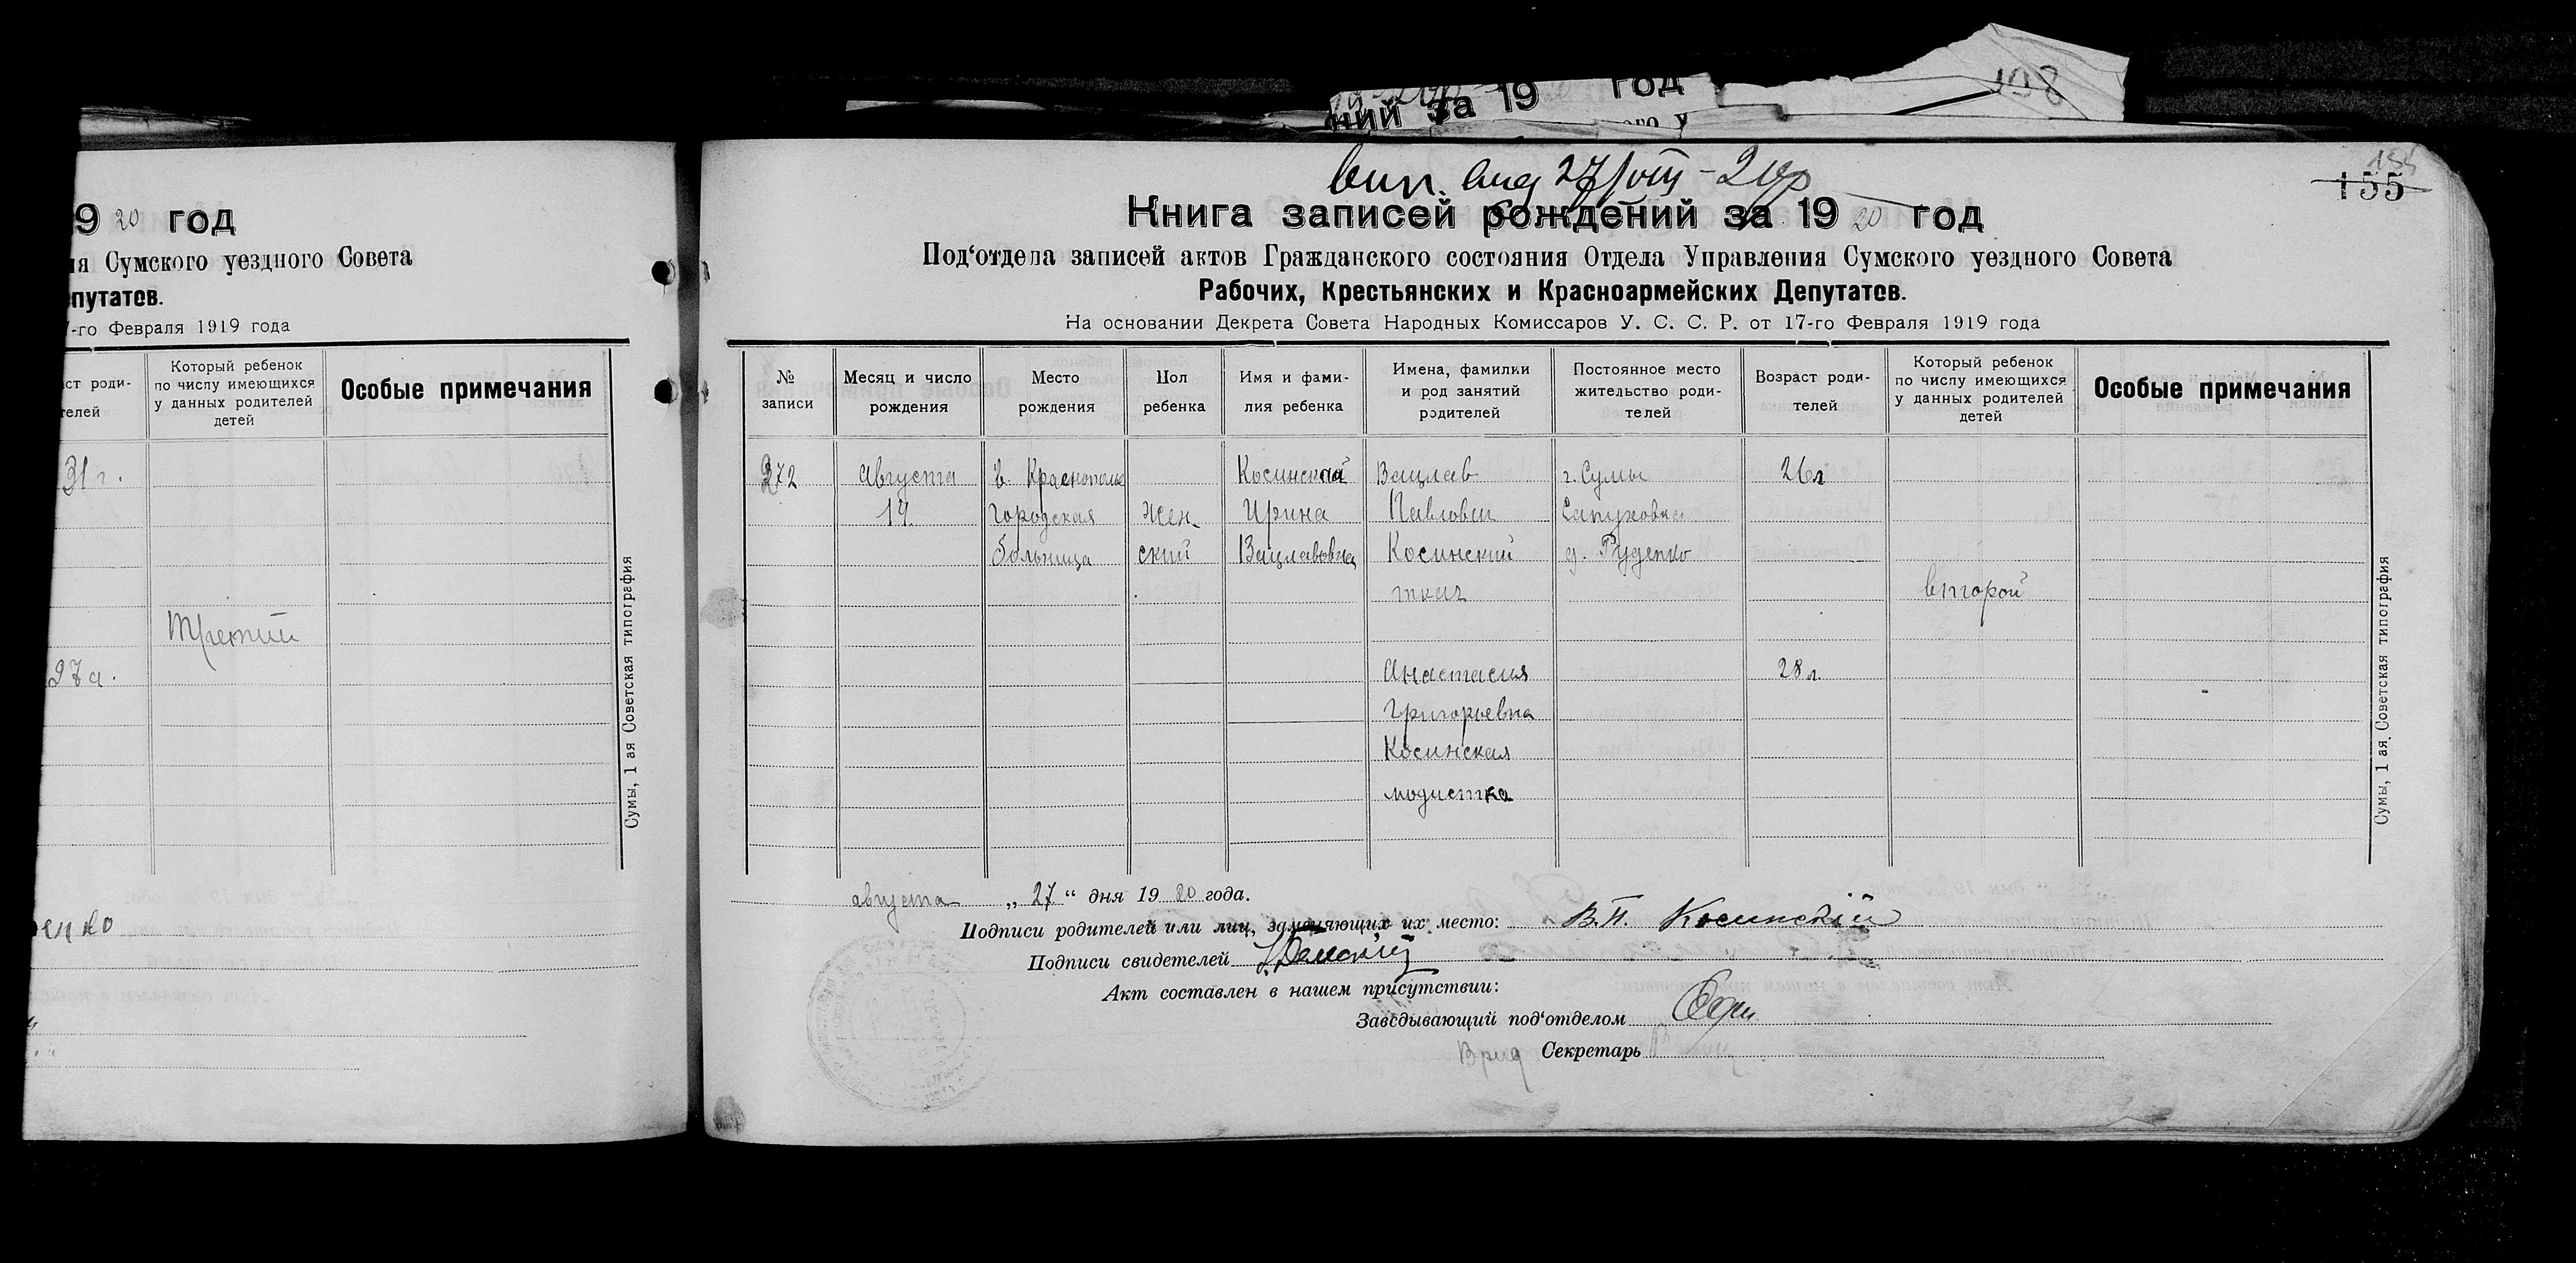 ний за 19 год
198
9 20 год
ия Сумского уездного Совета
епутатов.
7-го Февраля 1919 года
аст роди-
телей
Который ребенок
по числу имеющихся
у данных родителей
детей
Особые примечания
31 г.
Третий
27 л.
енко
Сумы, 1 ая Советская типография
27/VIII - 20
155
Книга записей рождений за 19 20 год
Под‘отдела записей актов Гражданского состояния Отдела Управления Сумского уездного Совета
Рабочих, Крестьянских и Красноармейских Депутатов.
На основании Декрета Совета Народных Комиссаров У. С. С. Р. от 17-го Февраля 1919 года
№
записи
Месяц и число
рождения
Место
рождения
Пол
ребенка
Имя и фами-
лия ребенка
Имена, фамилии
и род занятий
родителей
Постоянное место
жительство роди-
телей
Возраст роди-
телей
Который ребенок
по числу имеющихся
у данных родителей
детей
Особые примечания
372 Августа в Краснополье Косинская Вацлав г. Сумы 26 л
14 городская жен- Ирина Павлович
больница ский Вацлавовна Косинский д. Руденко
ткач второй
Анастасия 28 л.
Григорьевна
Косинская
модистка
августа „ 27 “ дня 19 20 года.
Подписи родителей или лиц, заменяющих их место: В.П. Косинскій
Подписи свидетелей
Акт составлен в нашем присутствии:
Заведывающий под‘отделом
Врид Секретарь
Сумы, 1 ая Советская типография